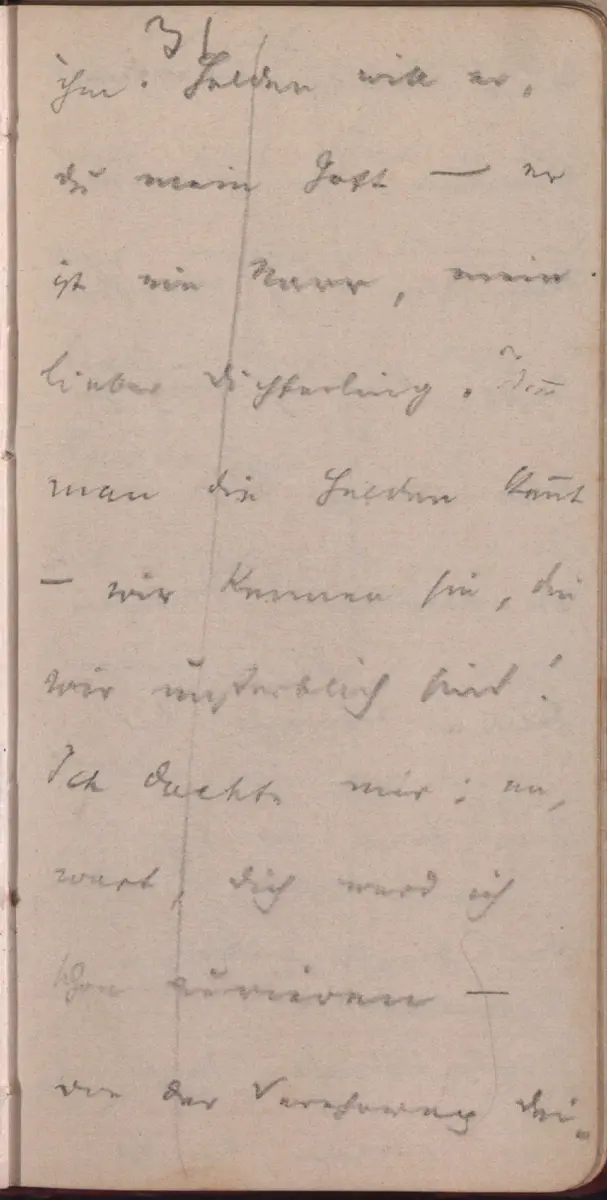 31
ihn. Helden will er,
du mein Gott — er
ist ein Narr, mein
lieber Dichterling. Wen̄
man die Helden ken̄t
— wir kennen sie, die
wir unsterblich sind!
Ich dachte mir: na,
wart, dich werd ich
schon curieren —
von der Verehrung dei-